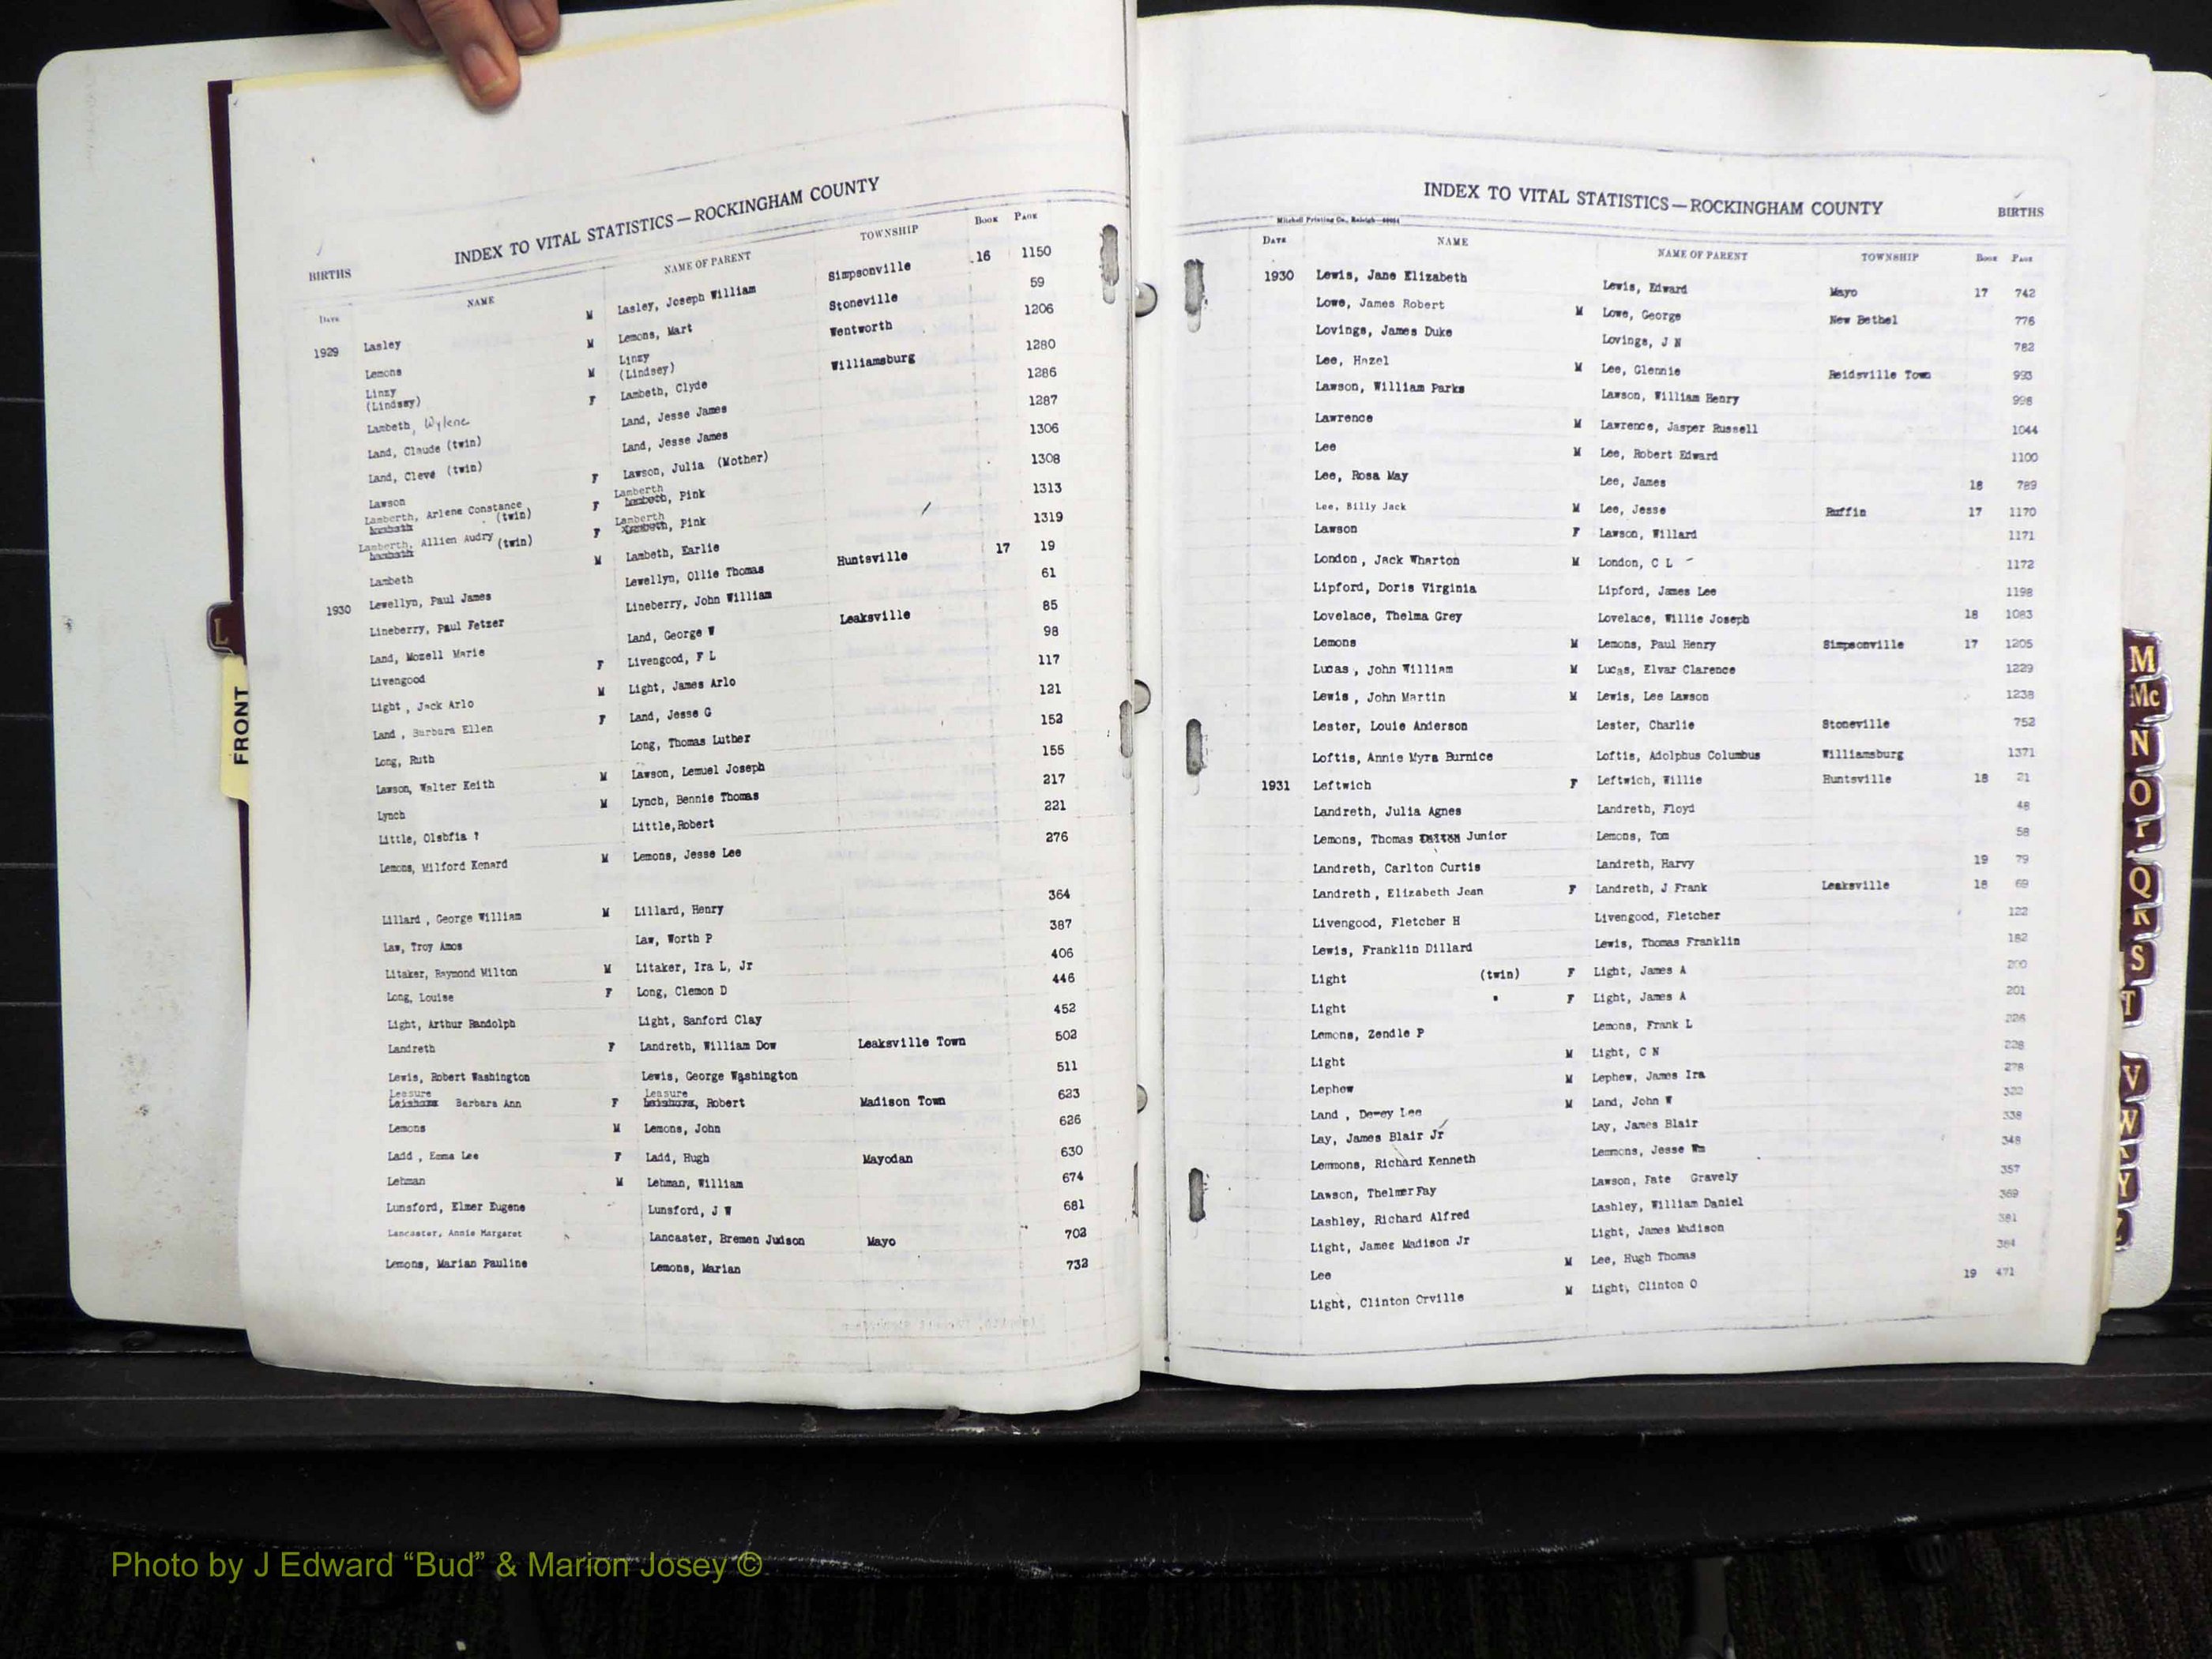 INDEX TO VITAL STATISTICS—ROCKINGHAM COUNTY
BIRTHS
DATE NAME NAME OF PARENT TOWNSHIP BOOK PAGE
1929 Lasley M Lasley, Joseph William Simpsonville 16 1150
Lemons M Lemons, Mart Stoneville 59
Linzy (Lindsey) M Linzy (Lindsey) Wentworth 1206
Lambeth, Wylene F Lambeth, Clyde Williamsburg 1280
Land, Claude (twin) Land, Jesse James 1286
Land, Cleve (twin) Land, Jesse James 1287
Lawson F Lawson, Julia (Mother) 1306
Lamberth, Arlene Constance (twin) F Lamberth, Pink 1308
Lamberth, Allien Audry (twin) F Lamberth, Pink 1313
Lambeth M Lambeth, Earlie 1319
1930 Lewellyn, Paul James Lewellyn, Ollie Thomas Huntsville 17 19
Lineberry, Paul Fetzer Lineberry, John William 61
Land, Mozell Marie Land, George W Leaksville 85
Livengood F Livengood, F L 98
Light , Jack Arlo M Light, James Arlo 117
Land , Barbara Ellen F Land, Jesse G 121
Long, Ruth Long, Thomas Luther 152
Lawson, Walter Keith M Lawson, Lemuel Joseph 155
Lynch M Lynch, Bennie Thomas 217
Little, Olsbfia ? Little,Robert 221
Lemons, Milford Kenard M Lemons, Jesse Lee 276
Lillard , George William M Lillard, Henry 364
Law, Troy Amos Law, Worth P 387
Litaker, Raymond Milton M Litaker, Ira L, Jr 406
Long, Louise F Long, Clemon D 446
Light, Arthur Randolph Light, Sanford Clay 452
Landreth F Landreth, William Dow Leaksville Town 502
Lewis, Robert Washington Lewis, George Washington 511
Leasure Barbara Ann F Leasure, Robert Madison Town 623
Lemons M Lemons, John 626
Ladd , Emma Lee F Ladd, Hugh Mayodan 630
Lehman M Lehman, William 674
Lunsford, Elmer Eugene Lunsford, J W 681
Lancaster, Annie Margaret Lancaster, Bremen Judson Mayo 702
Lemons, Marian Pauline Lemons, Marian 732
L
FRONT
INDEX TO VITAL STATISTICS—ROCKINGHAM COUNTY
BIRTHS
Mitchell Printing Co., Raleigh
DATE NAME NAME OF PARENT TOWNSHIP BOOK PAGE
1930 Lewis, Jane Elizabeth Lewis, Edward Mayo 17 742
Lowe, James Robert M Lowe, George New Bethel 776
Lovings, James Duke Lovings, J N 782
Lee, Hazel M Lee, Glennie Reidsville Town 993
Lawson, William Parks Lawson, William Henry 996
Lawrence M Lawrence, Jasper Russell 1044
Lee M Lee, Robert Edward 1100
Lee, Rosa May Lee, James 18 789
Lee, Billy Jack M Lee, Jesse Ruffin 17 1170
Lawson F Lawson, Willard 1171
London , Jack Wharton M London, C L 1172
Lipford, Doris Virginia Lipford, James Lee 1198
Lovelace, Thelma Grey Lovelace, Willie Joseph 18 1083
Lemons M Lemons, Paul Henry Simpsonville 17 1205
Lucas , John William M Lucas, Elvar Clarence 1229
Lewis , John Martin M Lewis, Lee Lawson 1238
Lester, Louie Anderson Lester, Charlie Stoneville 752
Loftis, Annie Myra Burnice Loftis, Adolphus Columbus Williamsburg 1371
1931 Leftwich F Leftwich, Willie Huntsville 18 21
Landreth, Julia Agnes Landreth, Floyd 48
Lemons, Thomas Junior Lemons, Tom 58
Landreth, Carlton Curtis Landreth, Harvy 19 79
Landreth , Elizabeth Jean F Landreth, J Frank Leaksville 18 69
Livengood, Fletcher H Livengood, Fletcher 122
Lewis, Franklin Dillard Lewis, Thomas Franklin 182
Light (twin) F Light, James A 200
Light " F Light, James A 201
Lemons, Zendle P Lemons, Frank L 226
Light M Light, C N 228
Lephew M Lephew, James Ira 278
Land , Dewey Lee M Land, John W 322
Lay, James Blair Jr Lay, James Blair 338
Lemmons, Richard Kenneth Lemmons, Jesse Wm 348
Lawson, Thelmer Fay Lawson, Fate Gravely 357
Lashley, Richard Alfred Lashley, William Daniel 369
Light, James Madison Jr Light, James Madison 381
Lee M Lee, Hugh Thomas 384
Light, Clinton Orville M Light, Clinton O 19 471
M
Mc
N
O
P
Q
R
S
T
V
W
Y
Z
Photo by J Edward “Bud” & Marion Josey ©